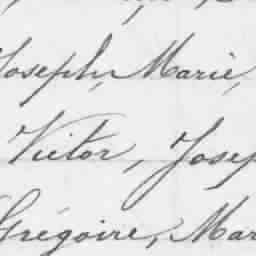 Joseph, Marie,
Victor, Josep
Grégoire, Mar